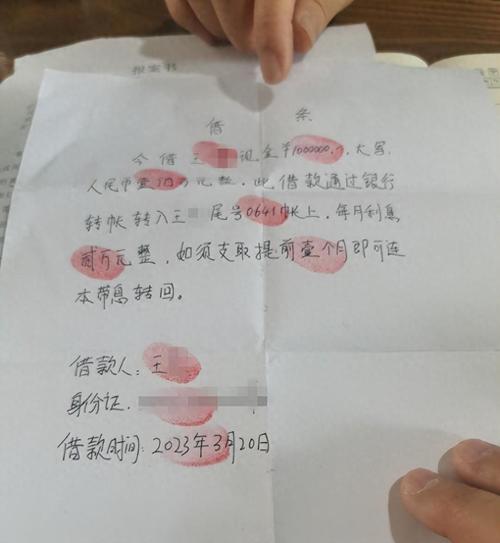 报案书
借 条
今借王 现金¥1000000.0, 大写
人民币壹佰万元整, 此借款通过银行
转帐转入王 尾号0641帐上, 每月利息
贰万元整, 如须支取提前壹个月即可连
本带息转回。
借款人: 王
身份证.
借款时间: 2023年3月20日